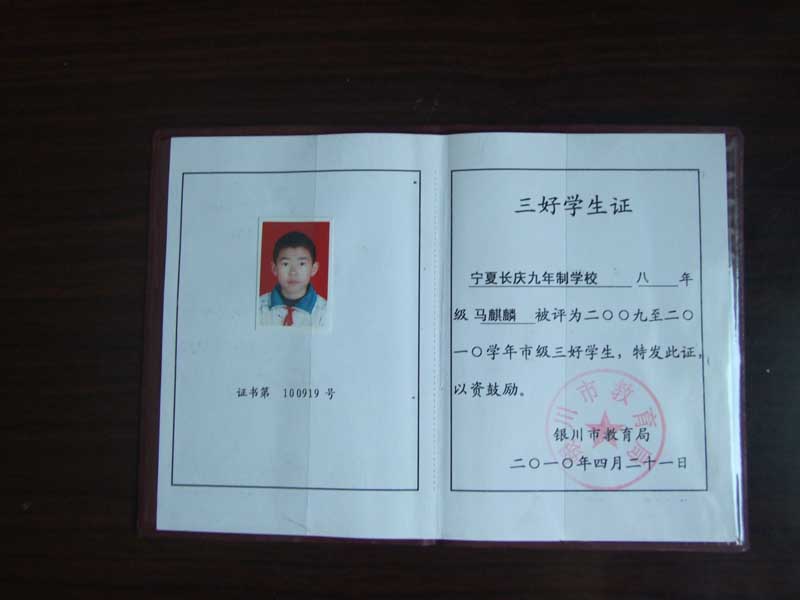 证书第 100919 号
三好学生证
宁夏长庆九年制学校 八 年
级 马麒麟 被评为二〇〇九至二〇
一〇学年市级三好学生，特发此证，
以资鼓励。
银川市教育局
二〇一〇年四月二十一日
银川市教育局